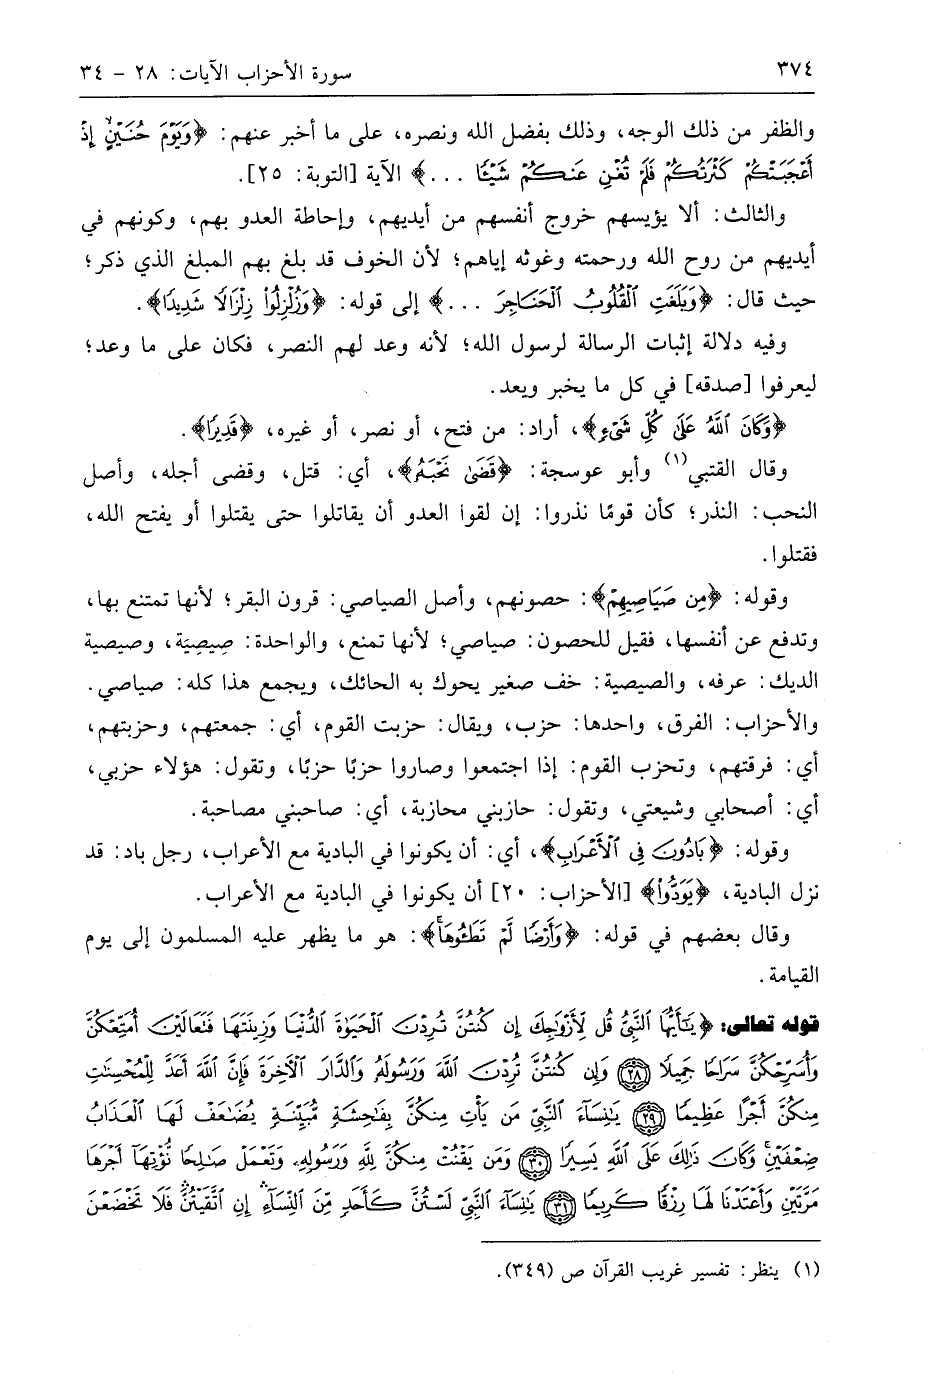 ٣٧٤ سورة الأحزاب الآيات: ٢٨ - ٣٤
والظفر من ذلك الوجه، وذلك بفضل الله ونصره، على ما أخبر عنهم: ﴿وَيَوْمَ حُنَيْنٍ إِذْ
أَعْجَبَتْكُمْ كَثْرَتُكُمْ فَلَمْ تُغْنِ عَنكُمْ شَيْئًا ...﴾ الآية [التوبة: ٢٥].
والثالث: ألا يؤيسهم خروج أنفسهم من أيديهم، وإحاطة العدو بهم، وكونهم في
أيديهم من روح الله ورحمته وغوثه إياهم؛ لأن الخوف قد بلغ بهم المبلغ الذي ذكر؛
حيث قال: ﴿وَبَلَغَتِ ٱلْقُلُوبُ ٱلْحَنَاجِرَ ...﴾ إلى قوله: ﴿وَزُلْزِلُوا۟ زِلْزَالًا شَدِيدًا﴾.
وفيه دلالة إثبات الرسالة لرسول الله؛ لأنه وعد لهم النصر، فكان على ما وعد؛
ليعرفوا [صدقه] في كل ما يخبر ويعد.
﴿وَكَانَ ٱللَّهُ عَلَىٰ كُلِّ شَىْءٍ﴾، أراد: من فتح، أو نصر، أو غيره، ﴿قَدِيرًا﴾.
وقال القتبي(١) وأبو عوسجة: ﴿قَضَىٰ نَحْبَهُۥ﴾، أي: قتل، وقضى أجله، وأصل
النحب: النذر؛ كأن قومًا نذروا: إن لقوا العدو أن يقاتلوا حتى يقتلوا أو يفتح الله،
فقتلوا.
وقوله: ﴿مِن صَيَاصِيهِمْ﴾: حصونهم، وأصل الصياصي: قرون البقر؛ لأنها تمتنع بها،
وتدفع عن أنفسها، فقيل للحصون: صياصي؛ لأنها تمنع، والواحدة: صِيصِيَة، وصيصية
الديك: عرفه، والصيصية: خف صغير يحوك به الحائك، ويجمع هذا كله: صياصي.
والأحزاب: الفرق، واحدها: حزب، ويقال: حزبت القوم، أي: جمعتهم، وحزبتهم،
أي: فرقتهم، وتحزب القوم: إذا اجتمعوا وصاروا حزبًا حزبًا، وتقول: هؤلاء حزبي،
أي: أصحابي وشيعتي، وتقول: حازبني محازبة، أي: صاحبني مصاحبة.
وقوله: ﴿بَادُونَ فِى ٱلْأَعْرَابِ﴾، أي: أن يكونوا في البادية مع الأعراب، رجل باد: قد
نزل البادية، ﴿يَوَدُّوا۟﴾ [الأحزاب: ٢٠] أن يكونوا في البادية مع الأعراب.
وقال بعضهم في قوله: ﴿وَأَرْضًا لَّمْ تَطَـُٔوهَا﴾: هو ما يظهر عليه المسلمون إلى يوم
القيامة.
قوله تعالى: ﴿يَـٰٓأَيُّهَا ٱلنَّبِىُّ قُل لِّأَزْوَٰجِكَ إِن كُنتُنَّ تُرِدْنَ ٱلْحَيَوٰةَ ٱلدُّنْيَا وَزِينَتَهَا فَتَعَالَيْنَ أُمَتِّعْكُنَّ
وَأُسَرِّحْكُنَّ سَرَاحًا جَمِيلًا ﴿٢٨﴾ وَإِن كُنتُنَّ تُرِدْنَ ٱللَّهَ وَرَسُولَهُۥ وَٱلدَّارَ ٱلْـَٔاخِرَةَ فَإِنَّ ٱللَّهَ أَعَدَّ لِلْمُحْسِنَـٰتِ
مِنكُنَّ أَجْرًا عَظِيمًا ﴿٢٩﴾ يَـٰنِسَآءَ ٱلنَّبِىِّ مَن يَأْتِ مِنكُنَّ بِفَـٰحِشَةٍ مُّبَيِّنَةٍ يُضَـٰعَفْ لَهَا ٱلْعَذَابُ
ضِعْفَيْنِ ۚ وَكَانَ ذَٰلِكَ عَلَى ٱللَّهِ يَسِيرًا ﴿٣٠﴾ وَمَن يَقْنُتْ مِنكُنَّ لِلَّهِ وَرَسُولِهِۦ وَتَعْمَلْ صَـٰلِحًا نُّؤْتِهَآ أَجْرَهَا
مَرَّتَيْنِ وَأَعْتَدْنَا لَهَا رِزْقًا كَرِيمًا ﴿٣١﴾ يَـٰنِسَآءَ ٱلنَّبِىِّ لَسْتُنَّ كَأَحَدٍ مِّنَ ٱلنِّسَآءِ ۚ إِنِ ٱتَّقَيْتُنَّ فَلَا تَخْضَعْنَ
(١) ينظر: تفسير غريب القرآن ص (٣٤٩).